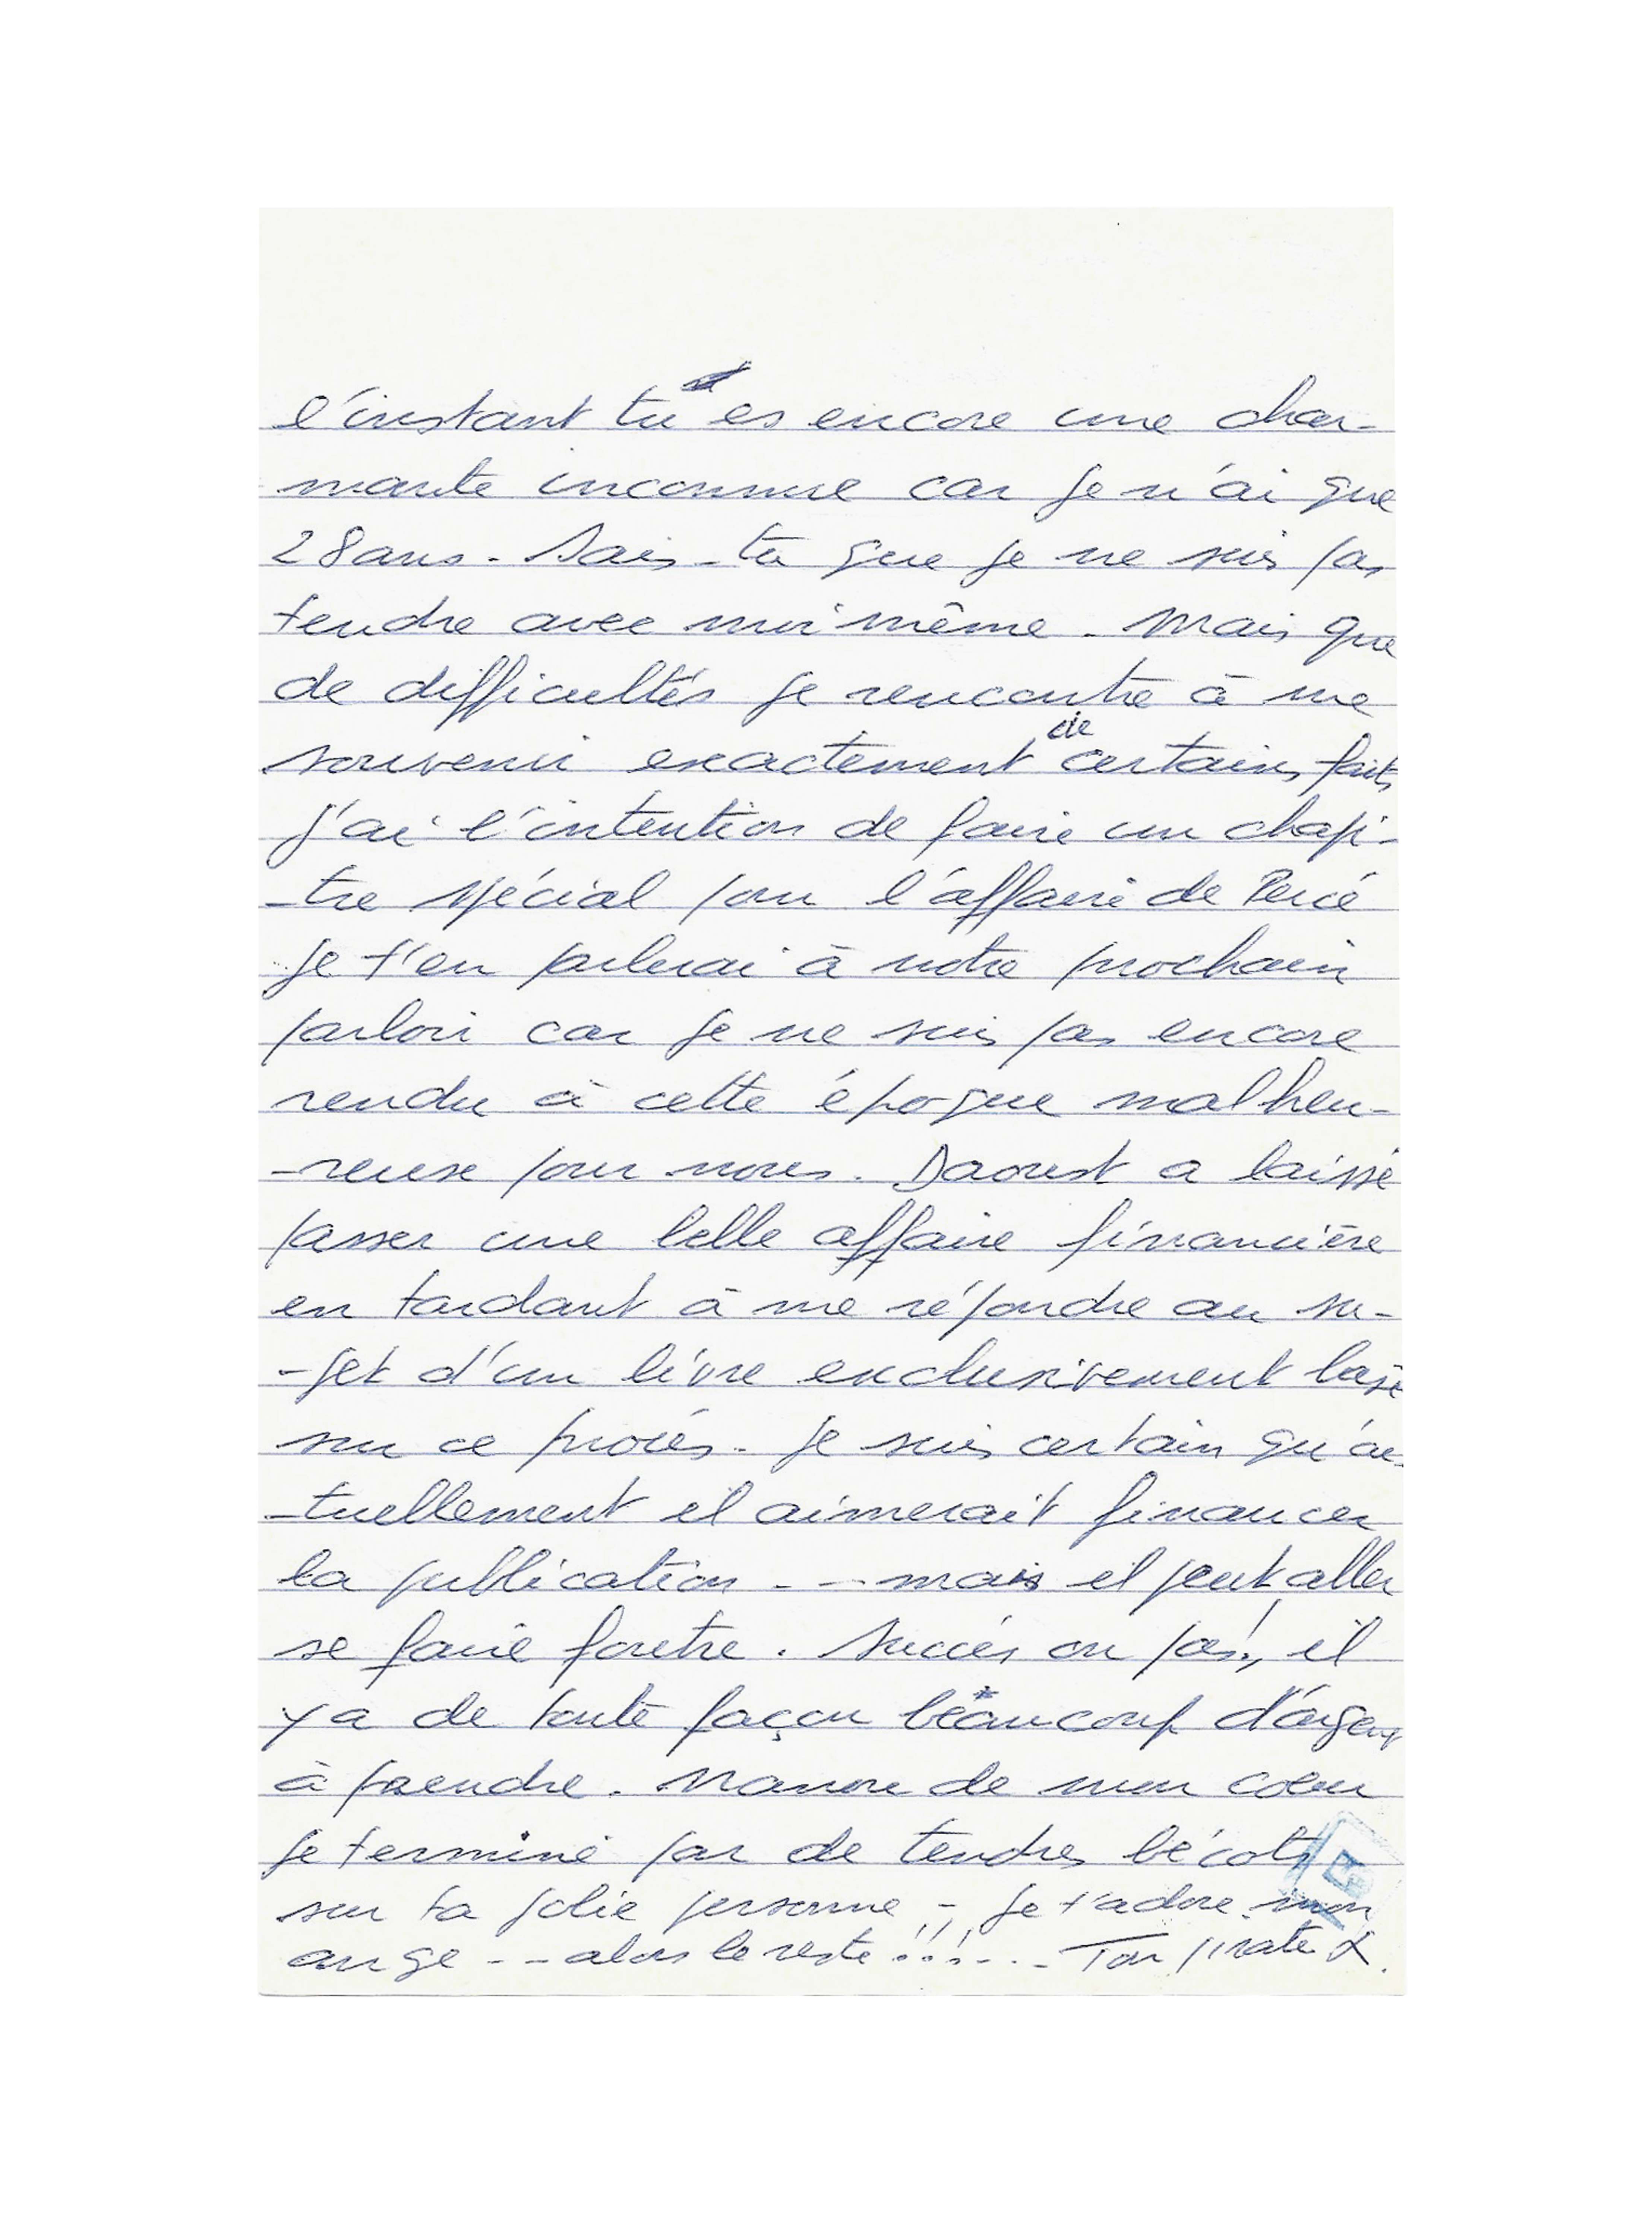 l'instant tu es encore une char-
mante inconnue car je n'ai que
28 ans - Sais-tu que je ne suis pas
tendre avec moi même. Mais que
de difficultés je rencontre à me
souvenir exactement de certains faits
J'ai l'intention de faire un chapi-
-tre spécial pour l'affaire de Percé
Je t'en parlerai à notre prochain
parloir car je ne suis pas encore
rendu à cette époque malheu-
-reuse pour nous. Daoust a laissé
passer une belle affaire financière
en tardant à me répondre au su-
-jet d'un livre exclusivement basé
sur ce procès. Je suis certain qu'ac-
-tuellement il aimerait financer
la publication - - - mais il peut aller
se faire foutre. Succès ou pas!, il
y a de toute façon beaucoup d'argent
à prendre. Nanou de mon coeur
je termine par de tendres bécots
sur ta jolie personne - Je t'adore mon
ange - - alors le reste !!!... Ton pirate X.